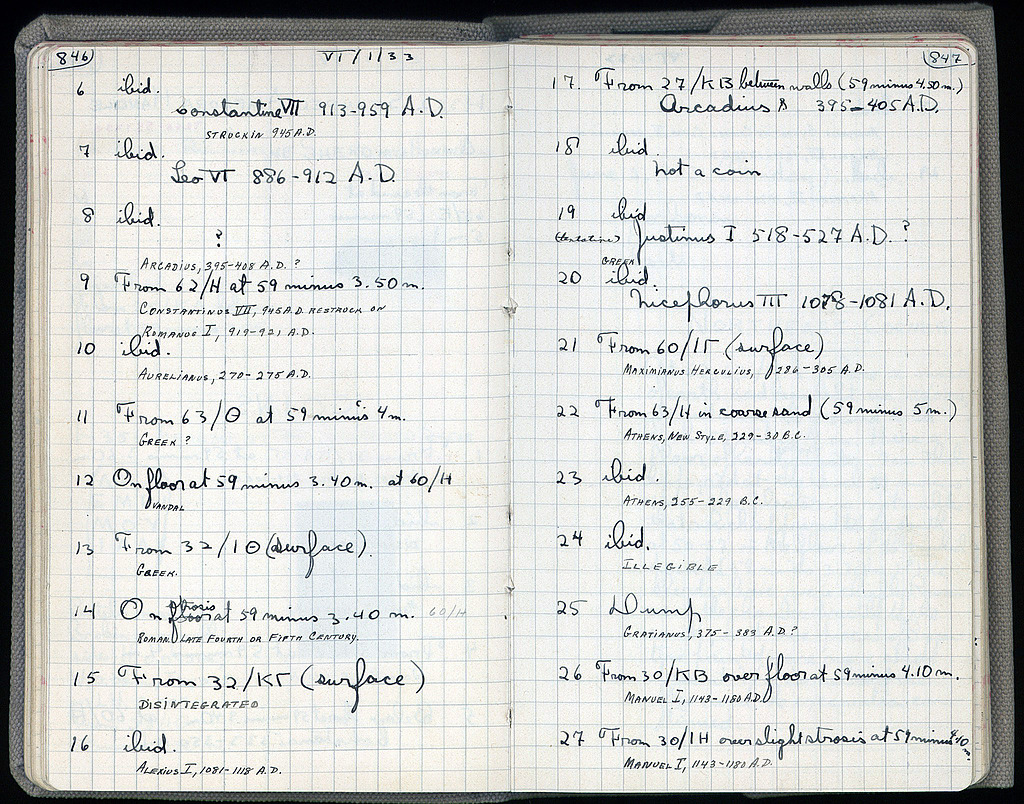 846
VI/1/33
6 ibid.
Constantine VII 913-959 A.D.
STRUCK IN 945 A.D.
7 ibid.
Leo VI 886-912 A.D.
8 ibid.
?
ARCADIUS, 395-408 A.D. ?
9 From 62/H at 59 minus 3.50 m.
CONSTANTINUS VII, 945 A.D. RESTRUCK ON
ROMANUS I, 919-921 A.D.
10 ibid.
AURELIANUS, 270-275 A.D.
11 From 63/Θ at 59 minus 4 m.
GREEK ?
12 On floor at 59 minus 3.40 m. at 60/H
VANDAL
13 From 32/ΙΘ (surface).
GREEK.
14 On strosis at 59 minus 3.40 m. 60/H
ROMAN, LATE FOURTH OR FIFTH CENTURY.
15 From 32/ΚΓ (surface)
DISINTEGRATED
16 ibid.
ALEXIUS I, 1081-1118 A.D.
847
17. From 27/KB between walls (59 minus 4.50 m.)
Arcadius 395-405 A.D.
18 ibid.
not a coin
19 ibid
(tentative) Justinus I 518-527 A.D. ?
GREEK
20 ibid.
Nicephorus III 1078-1081 A.D.
21 From 60/ΙΓ (surface)
MAXIMIANUS HERCULIUS, 286-305 A.D.
22 From 63/H in coarse sand (59 minus 5 m.)
ATHENS, NEW STYLE, 229-30 B.C.
23 ibid.
ATHENS, 255-229 B.C.
24 ibid.
ILLEGIBLE
25 Dump
GRATIANUS, 375-383 A.D.?
26 From 30/KB over floor at 59 minus 4.10 m.
MANUEL I, 1143-1180 A.D.
27 From 30/ΙΗ over slight strosis at 59 minus 4.10 m.
MANUEL I, 1143-1180 A.D.